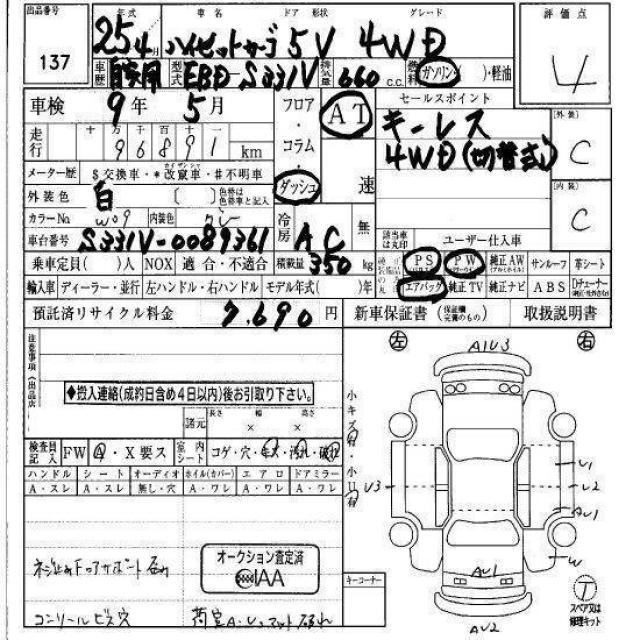 出品番号 年式 車名 ドア 形状 グレード 評価点
137 25年4月 ハイゼットカーゴ 5V 4WD 4
車歴 自家用 型式 EBD-S331V 排気量 660 c.c. 燃料 ガソリン・( )・軽油
車検 9年 5月 フロア・コラム・ダッシュ AT 速 セールスポイント
キーレス
4WD(切替式)
外装 C
内装 C
走行 十 万 千 百 十 一
96891 km
メーター歴 $交換車・*改竄車・#不明車
カイザンシャ
外装色 白 [ ] 色替は色替車と記入
カラーNo. W09 内装色 グレー 冷房 AC 無 該当車は丸印 ユーザー仕入車
車台番号 S331V-0089361 積載量 350 kg
乗車定員( )人 NOX 適合・不適合
PS PW 純正AW サンルーフ 革シート
エアバッグ 純正TV 純正ナビ ABS
輸入車 ディーラー・並行 左ハンドル・右ハンドル モデル年式( )年
預託済リサイクル料金 7,690 円 新車保証書(保証欄完備のもの) 取扱説明書
注意事項(出品店)
◆搬入連絡(成約日含め4日以内)後お引取り下さい。
諸元 長さ × 幅 × 高さ
検査員記入 FW A・X要ス 室内シート コゲ・穴・キズ・汚れ・破れ
ハンドル シート オーディオ ホイル(カバー) エアロ ドアミラー
A・スレ A・スレ 無し・穴 A・ワレ A・ワレ A・ワレ
ネジ止め
オークション査定済
IAA
コンソールビス穴
荷室A・U
左 右
AU3
小キズ有・小凹有
U3
U1
U2
AU1
W
AU1
AU2
キーコーナー
T
スペア又は修理キット